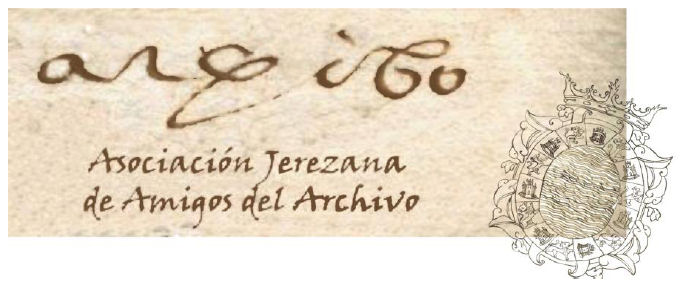 archibo
Asociación Jerezana
de Amigos del Archivo